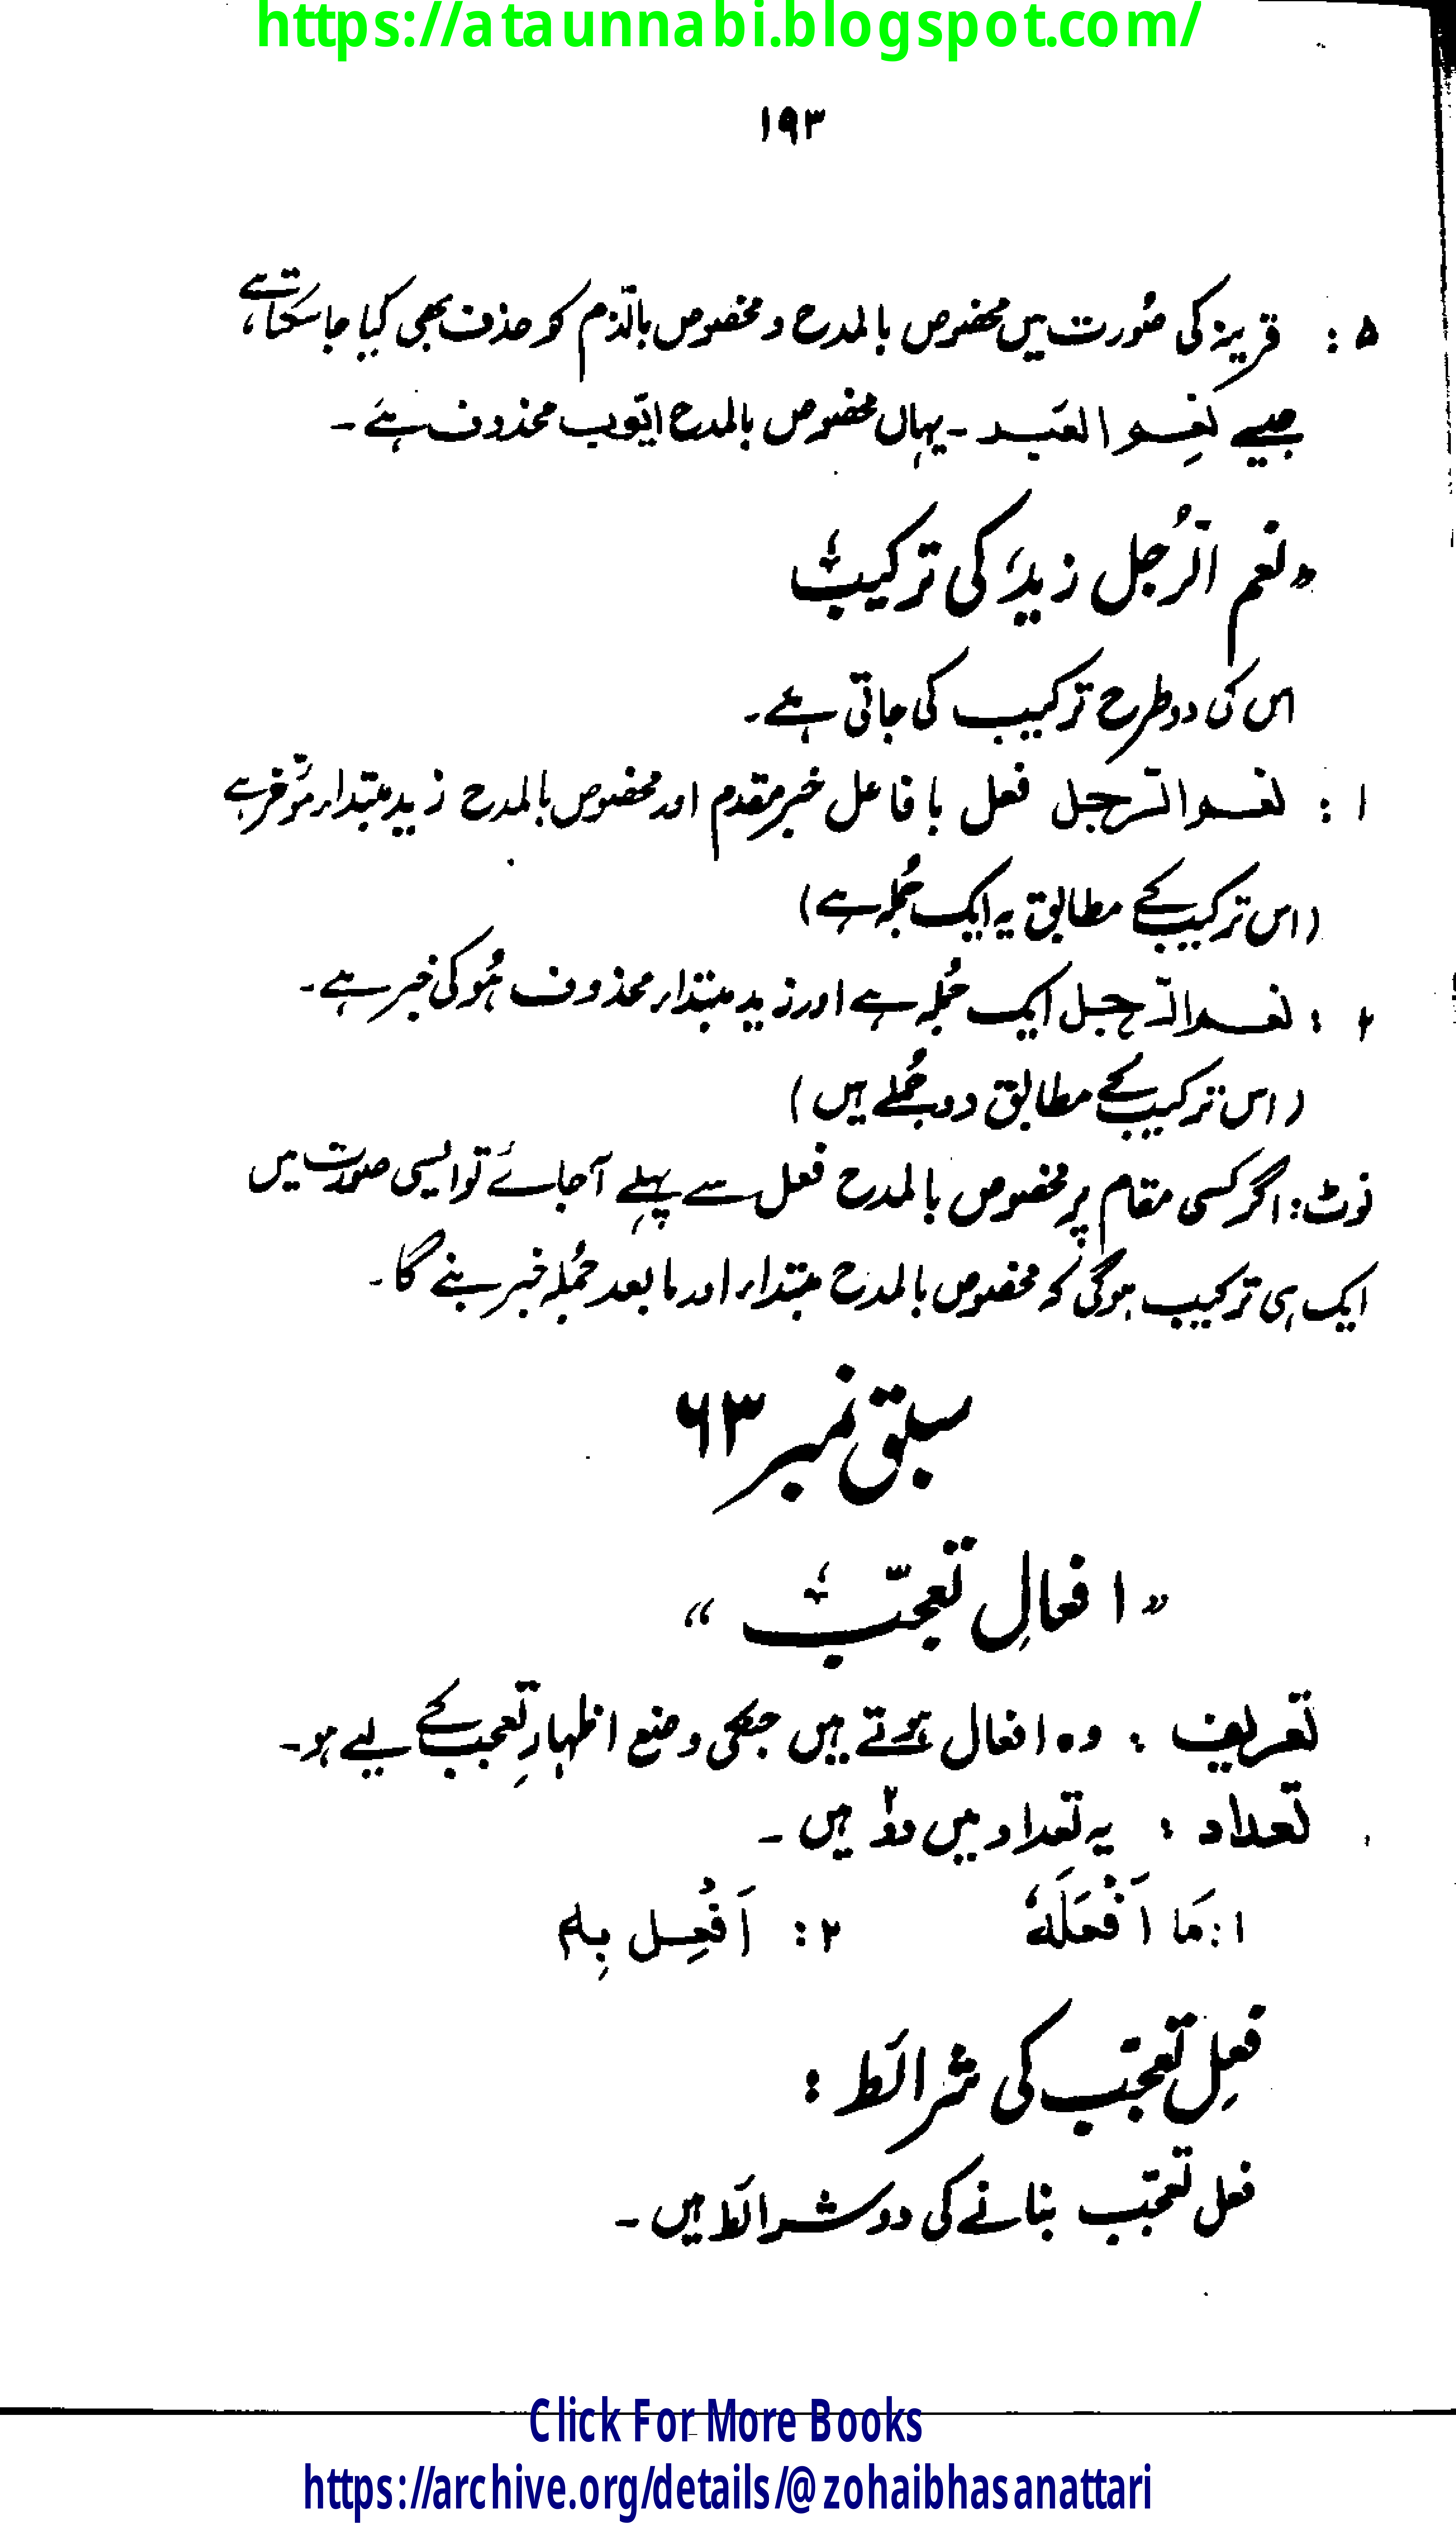 https://ataunnabi.blogspot.com/
۱۹۳
۵ : قرینہ کی صُورت میں مخصوص بالمدح و مخصوص بالذّم کو حذف بھی کیا جا سکتا ہے،
جیسے نِعْمَ الْعَبْد ۔ یہاں مخصوص بالمدح ایّوب محذوف ہے ۔
"نعم الرَّجُل زید کی ترکیب
اس کی دو طرح ترکیب کی جاتی ہے۔
۱ : نعم الرّجل فعل با فاعل خبر مقدم اور مخصوص بالمدح زید مبتداء مؤخر ہے
(اس ترکیب کے مطابق یہ ایک جُملہ ہے)
۲ : نعم الرّجل ایک جُملہ ہے اور زید مبتداء محذوف ہُو کی خبر ہے۔
(اس ترکیب کے مطابق دو جُملے ہیں)
نوٹ: اگر کسی مقام پر مخصوص بالمدح فعل سے پہلے آ جائے تو ایسی صورت میں
ایک ہی ترکیب ہو گی کہ مخصوص بالمدح مبتداء اور ما بعد جُملہ خبر بنے گا۔
سبق نمبر ۶۳
"افعالِ تعجّب"
تعریف : وہ افعال ہوتے ہیں جنکی وضع اظہارِ تعجب کے لیے ہو۔
تعداد : یہ تعداد میں دو۲ ہیں ۔
۱: مَا اَفْعَلَہٗ ۲: اَفْعِل بِہٖ
فعلِ تعجّب کی شرائط :
فعل تعجّب بنانے کی دو شرائط ہیں ۔
Click For More Books
https://archive.org/details/@zohaibhasanattari